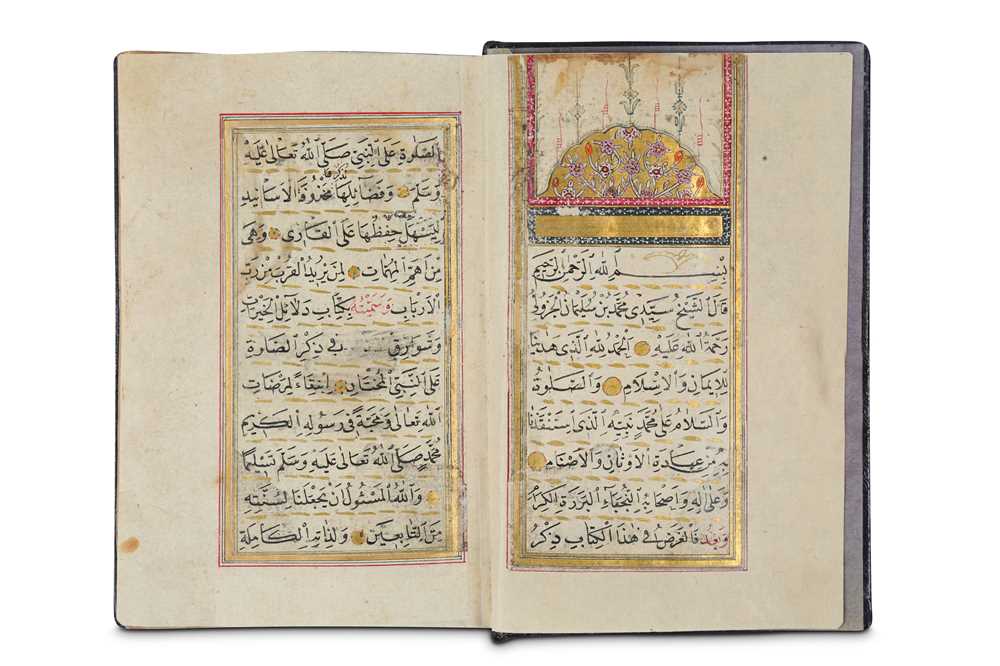 بِسْمِ اللّٰهِ الرَّحْمٰنِ الرَّحِيمِ
قَالَ الشَّيْخُ سَيِّدِي مُحَمَّدُ بْنُ سُلَيْمَانَ الْجَزُولِيُّ
رَحْمَةُ اللّٰهِ عَلَيْهِ اَلْحَمْدُ لِلّٰهِ الَّذِي هَدٰينَا
لِلْاِيمَانِ وَالْاِسْلَامِ وَالصَّلٰوةُ
وَالسَّلَامُ عَلٰى مُحَمَّدٍ نَبِيِّهِ الَّذِي اسْتَنْقَذَنَا
بِهِ مِنْ عِبَادَةِ الْاَوْثَانِ وَالْاَصْنَامِ
وَعَلٰى اٰلِهِ وَاَصْحَابِهِ النُّجَبَاءِ الْبَرَرَةِ الْكِرَامِ
وَبَعْدُ فَالْغَرَضُ فِي هٰذَا الْكِتَابِ ذِكْرُ
الصَّلٰوةِ عَلَى النَّبِيِّ صَلَّى اللّٰهُ تَعَالٰى عَلَيْهِ
وَسَلَّمَ وَفَضَائِلِهَا نَذْكُرُهَا مَحْذُوفَةَ الْاَسَانِيدِ
لِيَسْهُلَ حِفْظُهَا عَلَى الْقَارِئِ وَهِيَ
مِنْ اَهَمِّ الْمُهِمَّاتِ لِمَنْ يُرِيدُ الْقُرْبَ مِنْ رَبِّ
الْاَرْبَابِ وَسَمَّيْتُهُ بِكِتَابِ دَلَائِلِ الْخَيْرَاتِ
وَشَوَارِقِ فِي ذِكْرِ الصَّلٰوةِ
عَلَى النَّبِيِّ الْمُخْتَارِ اِبْتِغَاءً لِمَرْضَاتِ
اللّٰهِ تَعَالٰى وَمَحَبَّةً فِي رَسُولِهِ الْكَرِيمِ
مُحَمَّدٍ صَلَّى اللّٰهُ تَعَالٰى عَلَيْهِ وَسَلَّمَ تَسْلِيمًا
وَاللّٰهُ الْمَسْئُولُ اَنْ يَجْعَلَنَا لِسُنَّتِهِ
مِنَ التَّابِعِينَ وَلِذَاتِهِ الْكَامِلَةِ